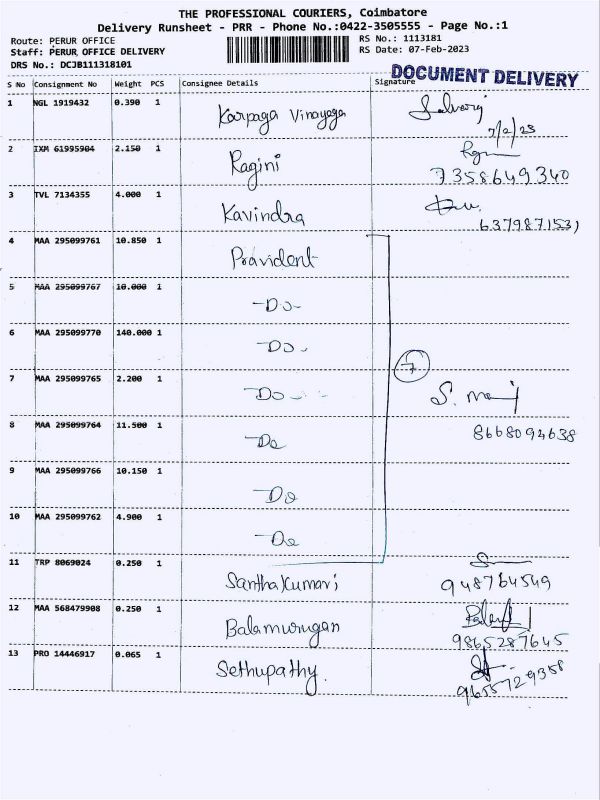 THE PROFESSIONAL COURIERS, Coimbatore
Delivery Runsheet - PRR - Phone No.:0422-3505555 - Page No.:1
Route: PERUR OFFICE RS No.: 1113181
Staff: PERUR OFFICE DELIVERY RS Date: 07-Feb-2023
DRS No.: DCJB111318101
DOCUMENT DELIVERY
S No Consignment No Weight PCS Consignee Details Signature
1 NGL 1919432 0.390 1 Karpaga Vinayaga
7/2/23
2 IXM 61995904 2.150 1 Ragini
7358649340
3 TVL 7134355 4.000 1 Kavindra
6379871531
4 MAA 295099761 10.850 1 Provident
5 MAA 295099767 10.000 1 -Do-
6 MAA 295099770 140.000 1 -Do-
7 MAA 295099765 2.200 1 -Do-
7 S. mani
8 MAA 295099764 11.500 1 -Do
8668094638
9 MAA 295099766 10.150 1 -Do
10 MAA 295099762 4.900 1 -Do
11 TRP 8069024 0.250 1 Santhakumari
948764549
12 MAA 568479908 0.250 1 Balamurugan
9865287645
13 PRO 14446917 0.065 1 Sethupathy
9655729358